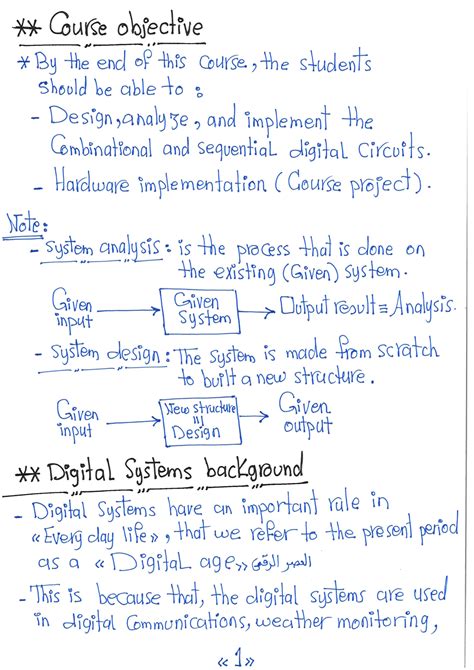 ** Course objective
* By the end of this course, the students
should be able to :
- Design, analyze, and implement the
Combinational and sequential digital Circuits.
- Hardware implementation (Course project).
Note:
- system analysis : is the process that is done on
the existing (Given) system.
Given input → Given System → Output result ≡ Analysis.
- system design : The system is made from scratch
to built a new structure.
Given input → New structure ≡ Design → Given output
** Digital Systems background
- Digital Systems have an important rule in
«Every day life», that we refer to the present period
as a «Digital age» العصر الرقمي
- This is because that, the digital systems are used
in digital Communications, weather monitoring,
«1»